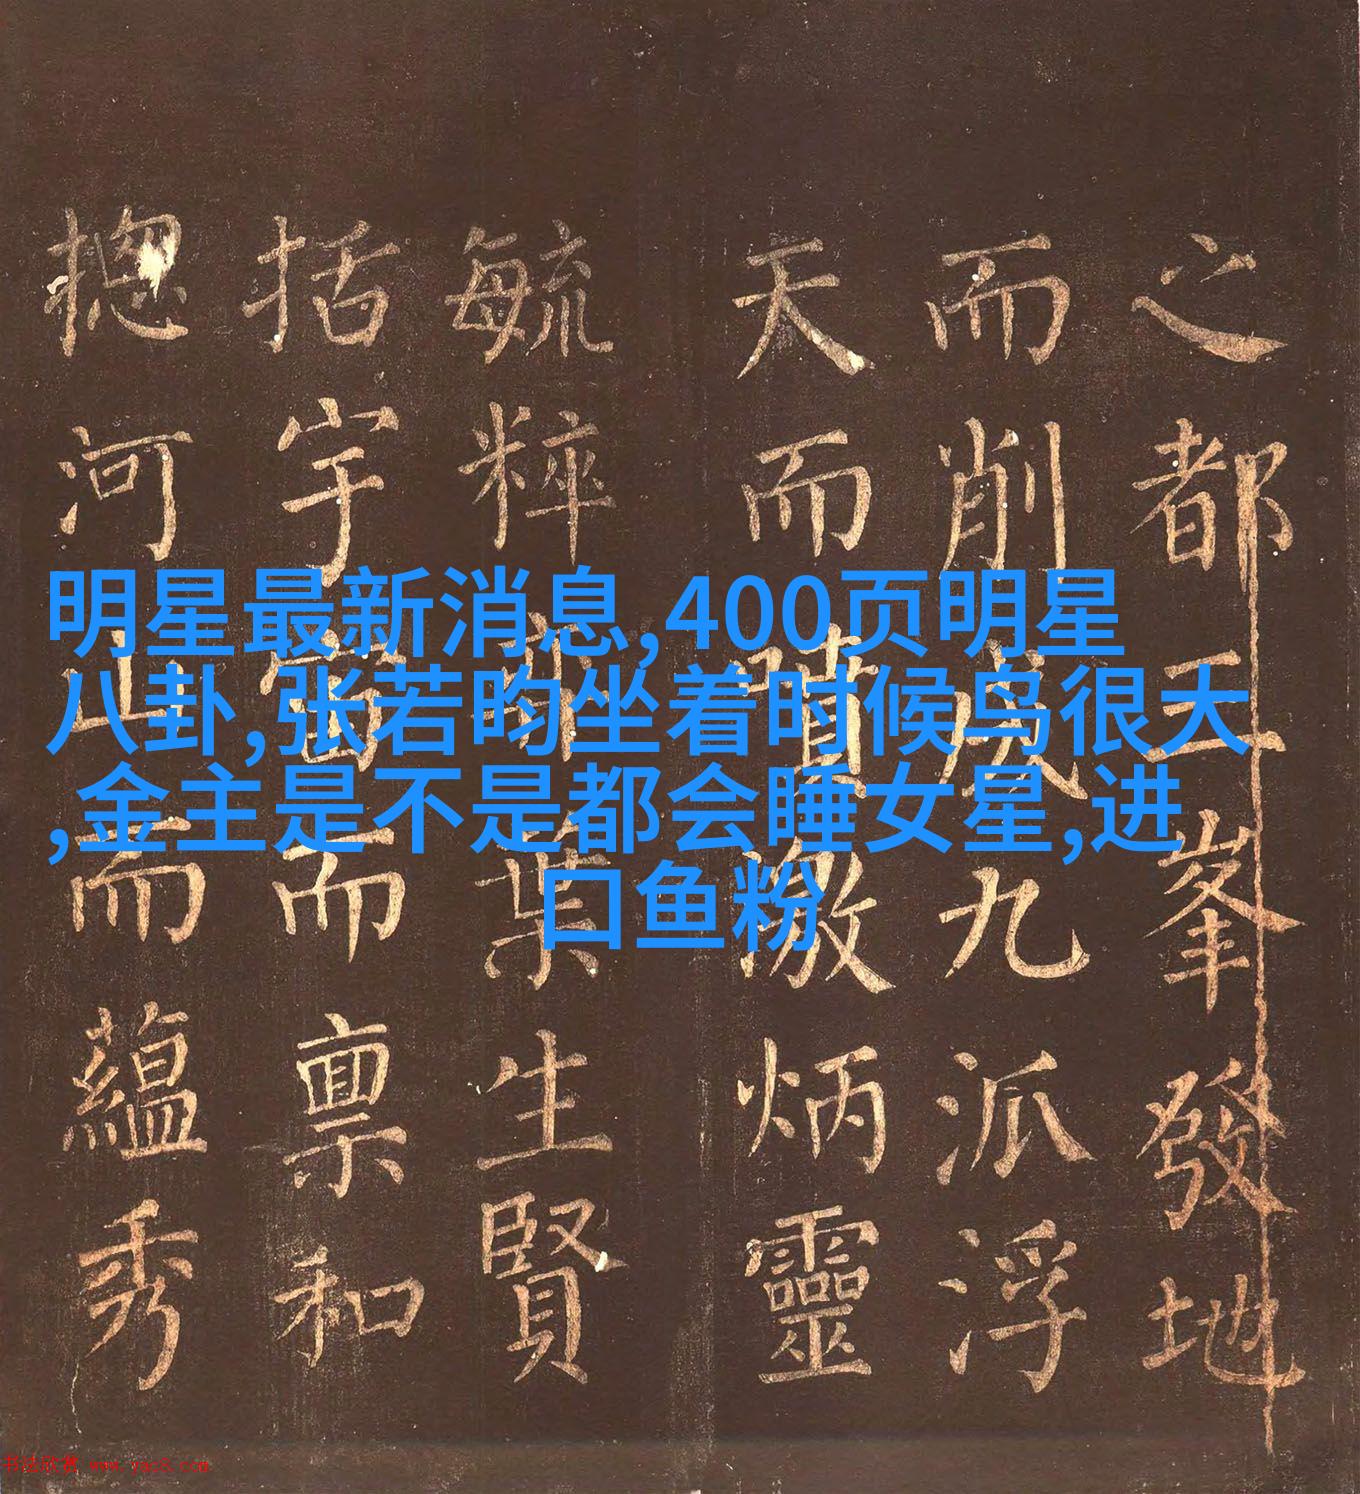 明星最新消息,400页明星
八卦,张若昀坐着时候鸟很大
,金主是不是都会睡女星,进
口鱼粉
之都三峯發地
而削成九派浮
天而噴激炳靈
毓粹葉生賢
括宇宙而禀和
揔河山而蘊秀
书法欣赏 www.yac8.com